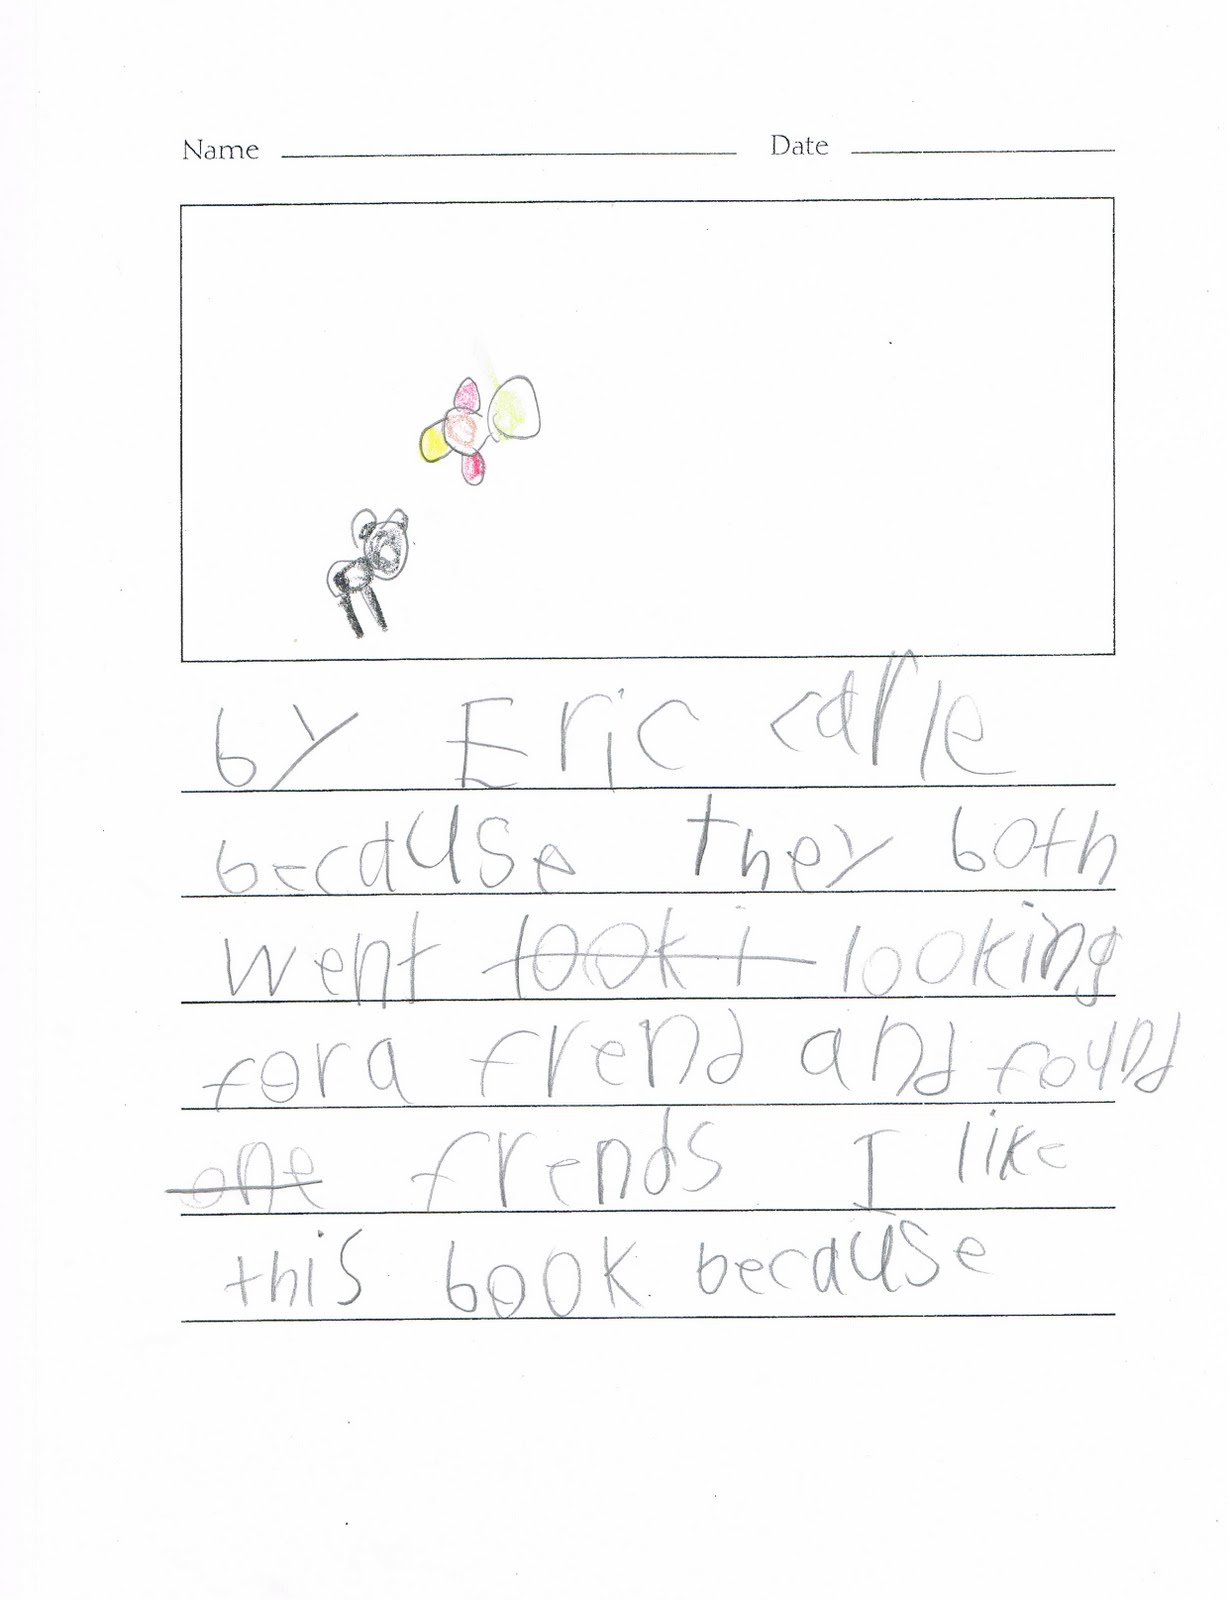 Name Date
by Eric carle
because they both
went look i looking
for a frend and found
one frends I like
this book because